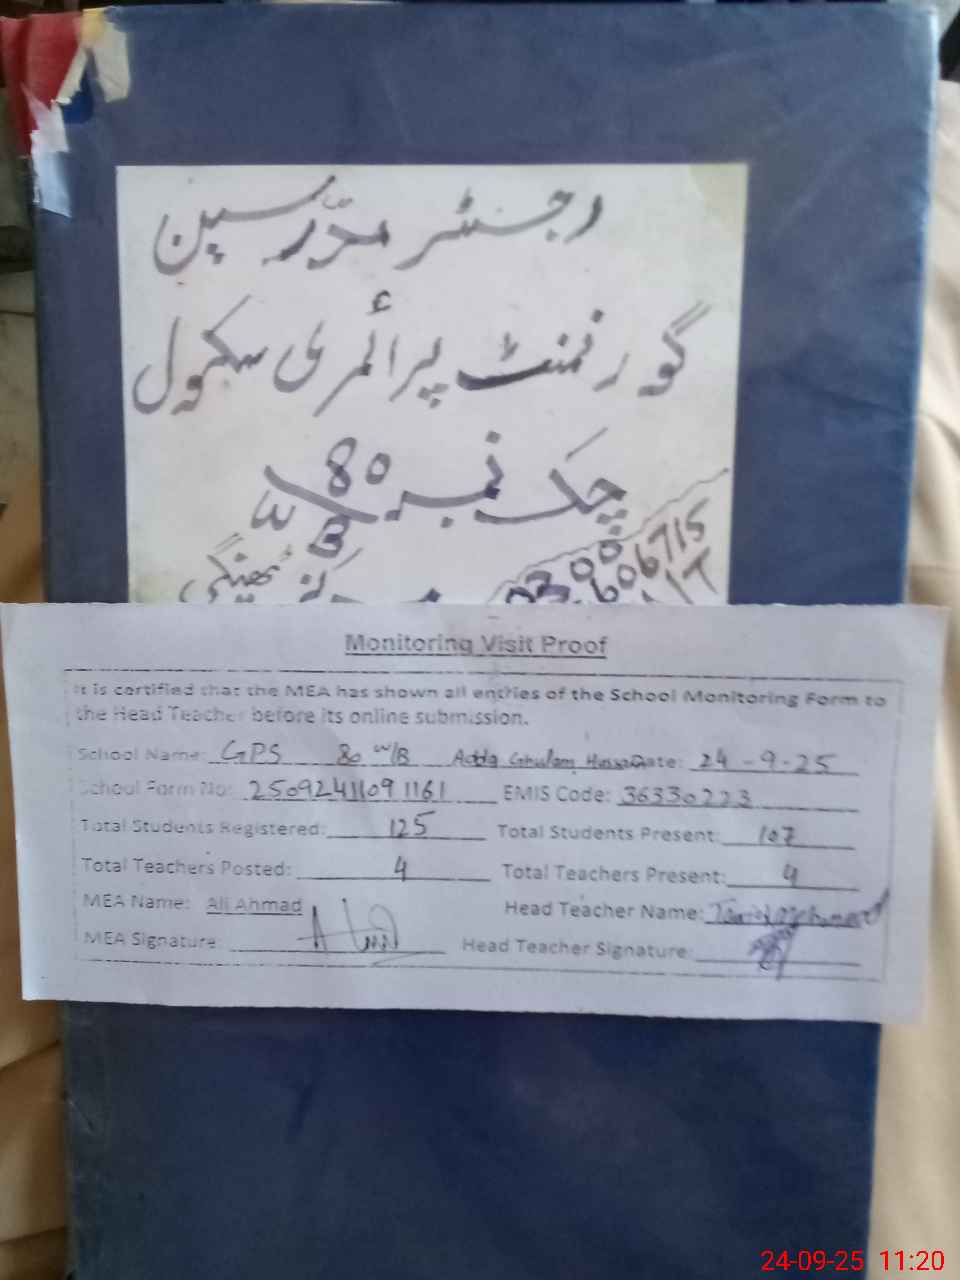 رجسٹر مدرسین
گورنمنٹ پرائمری سکول
چک نمبر 80
W
B
606715
Monitoring Visit Proof
It is certified that the MEA has shown all entries of the School Monitoring Form to
the Head Teacher before its online submission.
School Name: GPS 80 W/B Adda Ghulam Date: 24-9-25
School Form No: 2509241109 1161 EMIS Code: 36330223
Total Students Registered: 125 Total Students Present: 107
Total Teachers Posted: 4 Total Teachers Present: 4
MEA Name: Ali Ahmad Head Teacher Name:
MEA Signature: Head Teacher Signature:
24-09-25 11:20